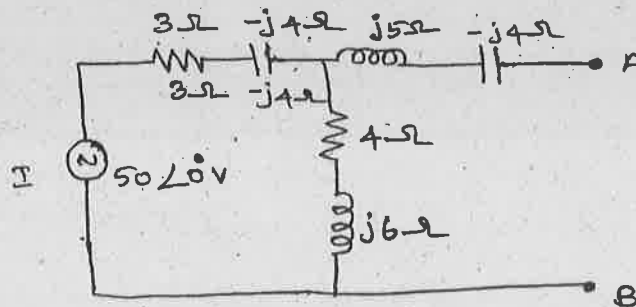 3Ω -j4Ω j5Ω -j4Ω
3Ω -j4Ω
A
4Ω
I N 50∠0° V
j6Ω
B